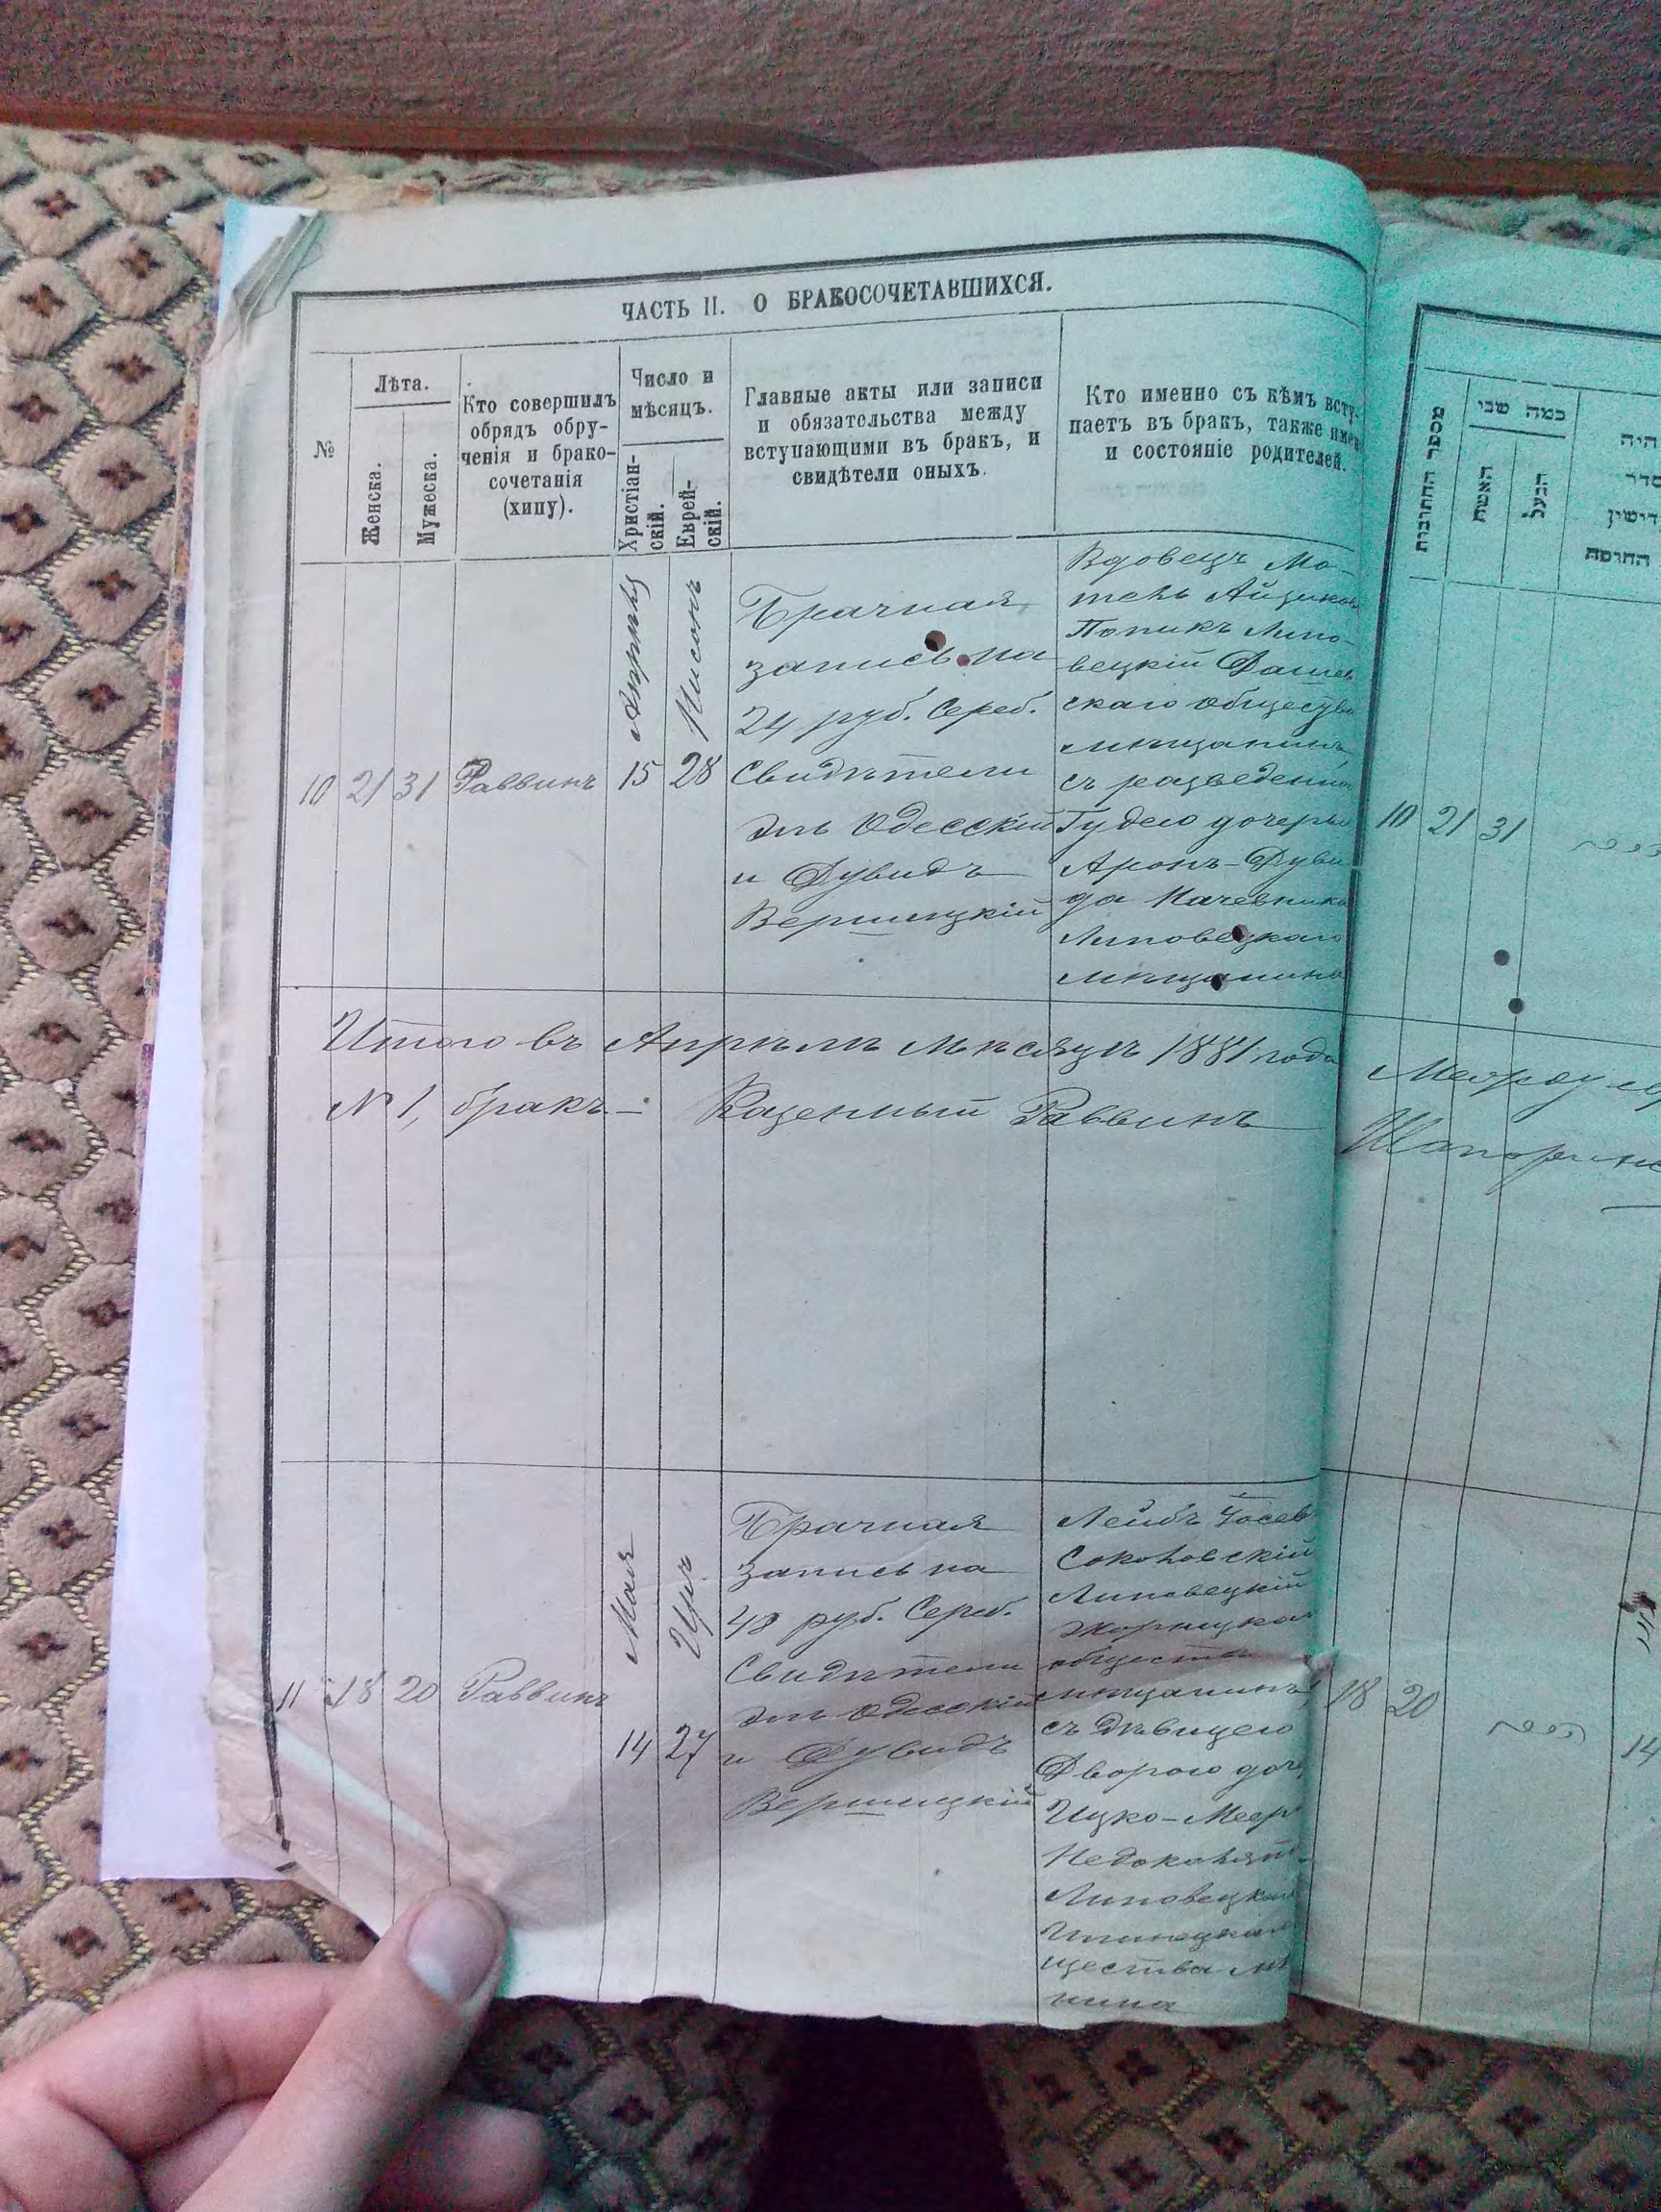 ЧАСТЬ II. О БРАКОСОЧЕТАВШИХСЯ.
№
Лѣта.
Женска.
Мужеска.
Кто совершилъ
обрядъ обру-
ченія и брако-
сочетанія
(хипу).
Число и
мѣсяцъ.
Христіан-
скій.
Еврей-
скій.
Главные акты или записи
и обязательства между
вступающими въ бракъ, и
свидѣтели оныхъ.
Кто именно съ кѣмъ всту-
паетъ въ бракъ, также имен
и состояніе родителей.
10
21
31
Раввинъ
15
28
Нисонъ
Брачная
запись на
24 руб. Сереб.
Свидѣтели
Эль Одесскій
и Дувидъ
Вершицкій
Вдовецъ Мо-
тель Айзиков
Попикъ Липо-
вецкій Дашев
скаго общества
мѣщанинъ,
съ разведенн
Гудею дочерью
Аронъ-Дуви
да Качевника
Липовецкаго
мѣщанина
Итого въ Апрѣлѣ мѣсяцѣ 1881 года
№ 1, бракъ — Казенный Раввинъ
11
18
20
Раввинъ
Мая
14
Иръ
27
Брачная
запись на
48 руб. Сереб.
Свидѣтели
Эль Одесскій
и Дувидъ
Вершицкій
Лейбъ Іосев
Соколовскій
Липовецкій
Жорницка
общества
мѣщанинъ
съ дѣвицею
Дворою доч
Ицко-Меер
Липовецка
щества мѣ
нина
מספר החתונות
כמה שני
האשה
הבעל
היה
סדר
החופה
10
21
31
18
20
14